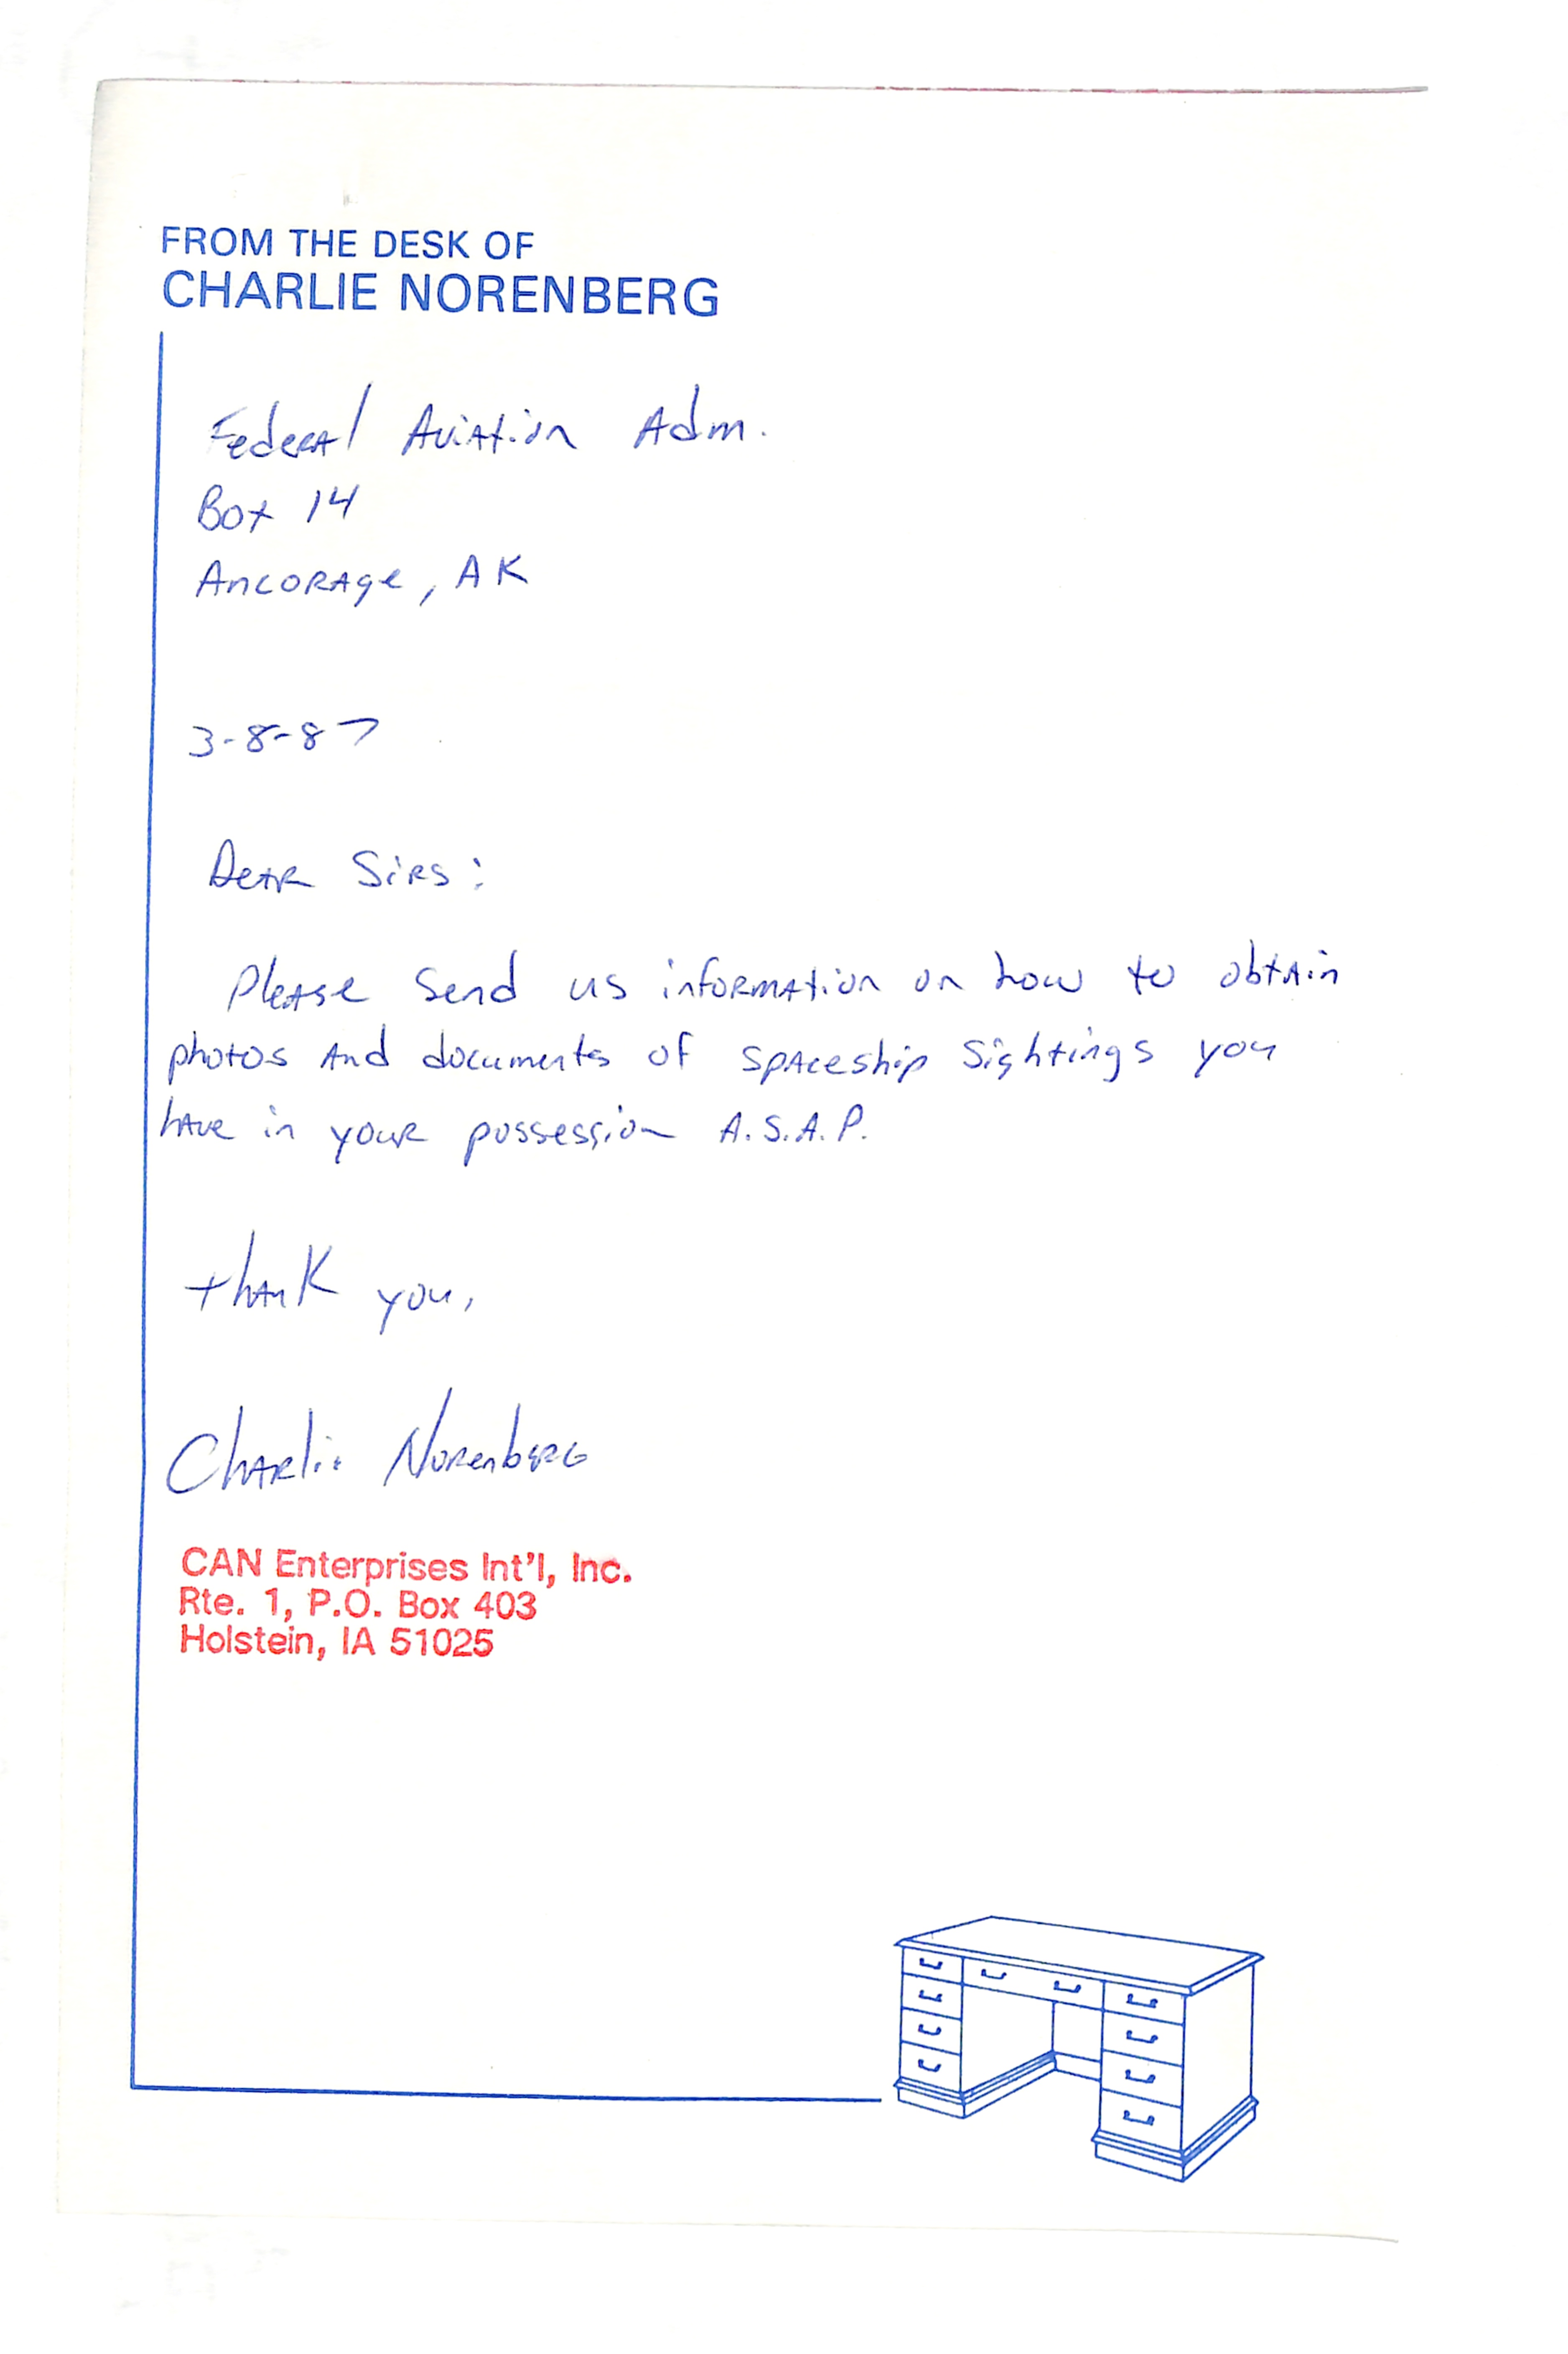 FROM THE DESK OF
CHARLIE NORENBERG
Federal Aviation Adm.
Box 14
Ancorage, AK
3-8-87
Dear Sirs:
Please Send us information on how to obtain
photos And documents of spaceship Sightings you
have in your possession A.S.A.P.
thank you,
Charlie Norenberg
CAN Enterprises Int'l, Inc.
Rte. 1, P.O. Box 403
Holstein, IA 51025